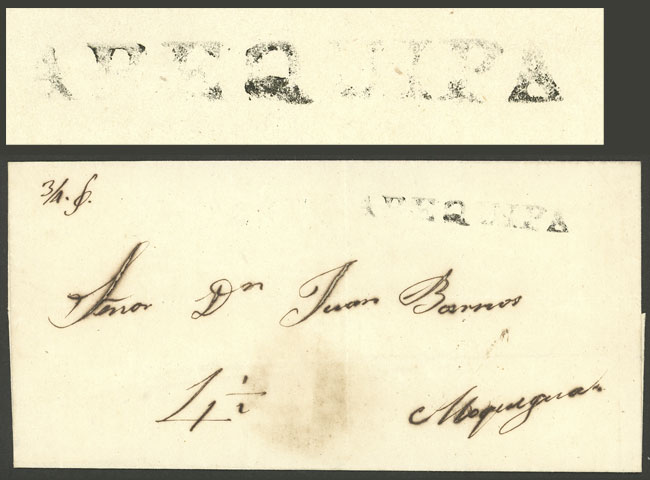 AREQUIPA
3/4. f.
AREQUIPA
Señor Dn Juan Barrios
4 1/2
Moquegua